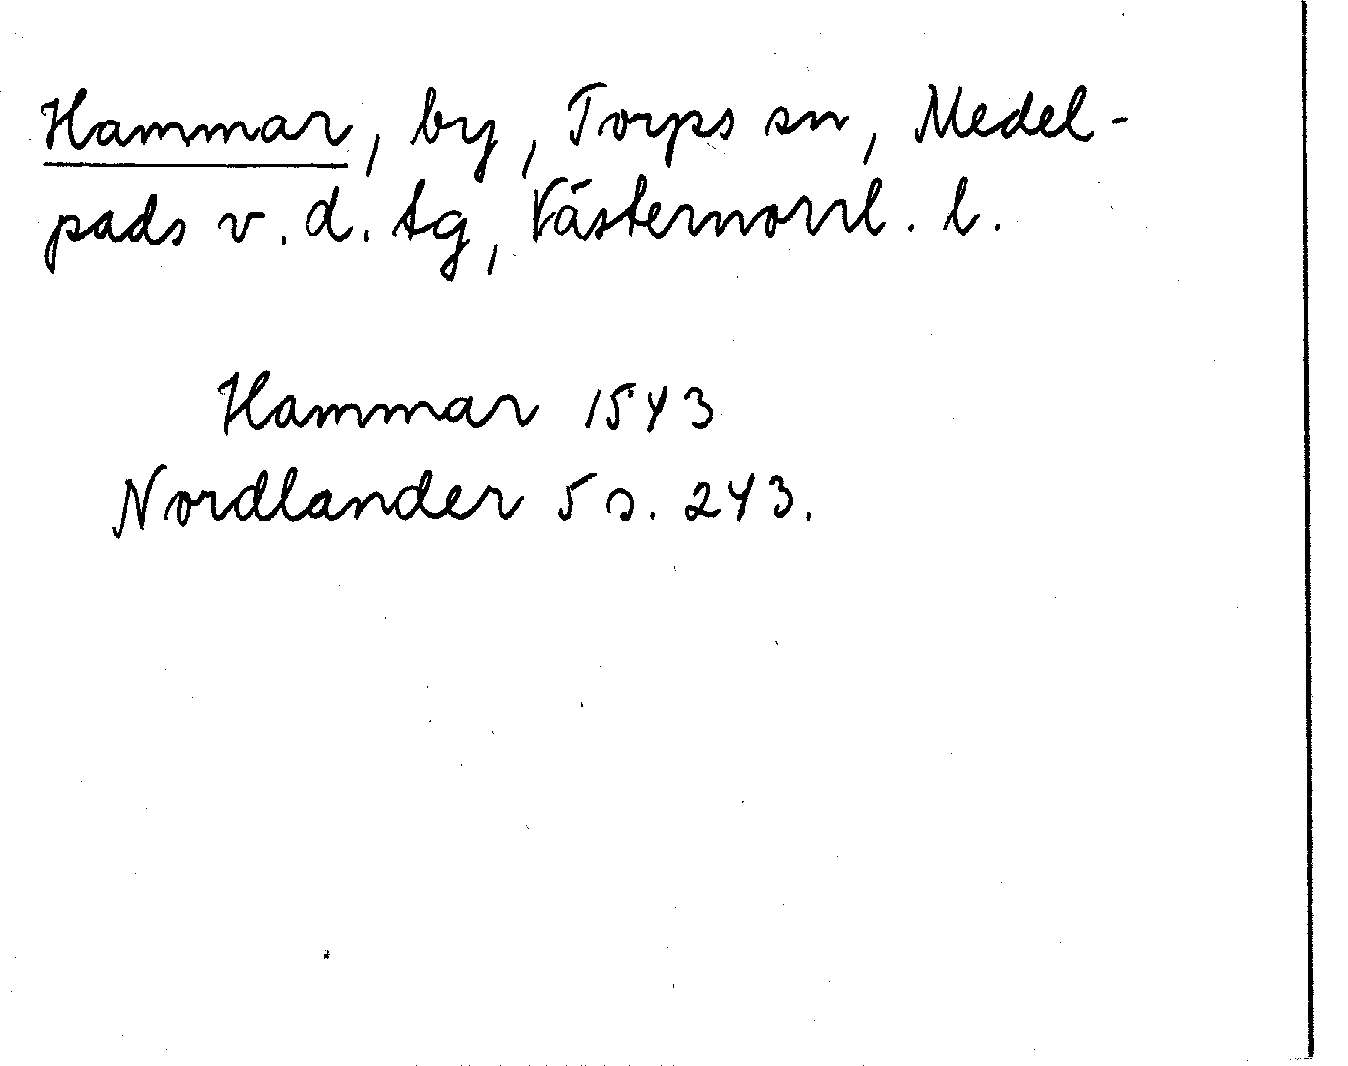 Hammar, by, Torps sn, Medel-
pads v. d. tg, Västernorrl. l.
Hammar 1543
Nordlander 5 s. 243.